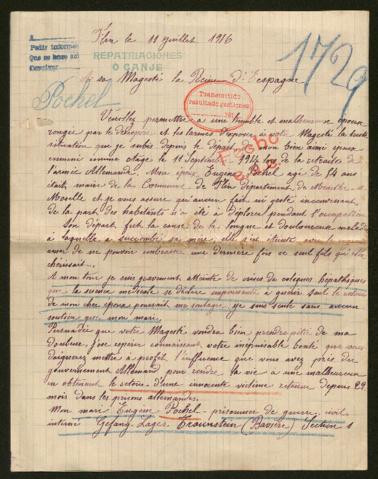 Flin le 11 Juillet 1916
A
Pedir informes
Que se tiene not
Conviver
REPATRIACIONES
O CANJE
1729
A sa Majesté la Reine d'Espagne
Pochel
Transmitido
resultado gestiones
Veuillez permettre à une humble et malheureuse épouse
rongée par le désespoir et les larmes d'exposer à votre Majesté la triste
situation que je subis depuis le départ de mon bien aimé époux
emmené comme otage le 11 Septembre 1914 lors de la retraite de
l'armée Allemande. Mon époux Eugène Pochel agé de 54 ans
était maire de la Commune de Flin département de Meurthe &
Moselle et je vous assure qu'aucun fait, ni geste inconvenant
de la part des habitants n'a été à déplorer pendant l'occupation
Son départ fut la cause de la longue et douloureuse maladie
à laquelle a succombé sa mère, elle s'est éteinte
avant de pouvoir embrasser une dernière fois ce seul fils qu'elle
chérissait.
A mon tour je suis gravement atteinte de crises de coliques hépathiques
que la science médicale se déclare impuissante à guérir seul le retour
de mon cher époux pourrait me soulager, je suis seule sans aucun
soutien que mon mari.
Persuadée que votre Majesté voudra bien prendre pitié de ma
douleur, j'ose espérer connaissant votre inépuisable bonté que vous
daignerez mettre à profit l'influence que vous avez près du
gouvernement Allemand pour rendre la vie à une malheureuse
en obtenant le retour d'une innocente victime retenue depuis 22
mois dans les prisons allemandes.
Mon mari Eugène Pochel prisonnier de guerre civil
interné Gefang. Lager Traunstein (Bavière) Section 1